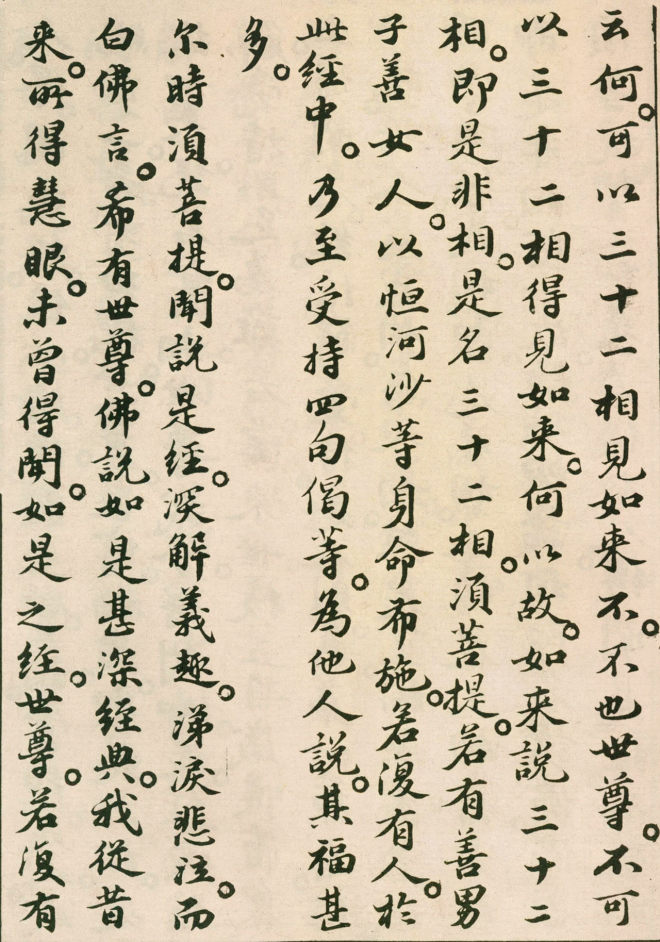 云何。可以三十二相見如来不。不也世尊。不可
以三十二相得見如来。何以故。如来說三十二
相。即是非相。是名三十二相。須菩提。若有善男
子善女人。以恒河沙等身命布施。若復有人。於
此經中。乃至受持四句偈等。為他人說。其福甚
多。
尔時須菩提。聞說是経。深解義趣。涕淚悲泣。而
白佛言。希有世尊。佛說如是甚深經典。我從昔
来。所得慧眼。未曾得聞。如是之経。世尊。若復有